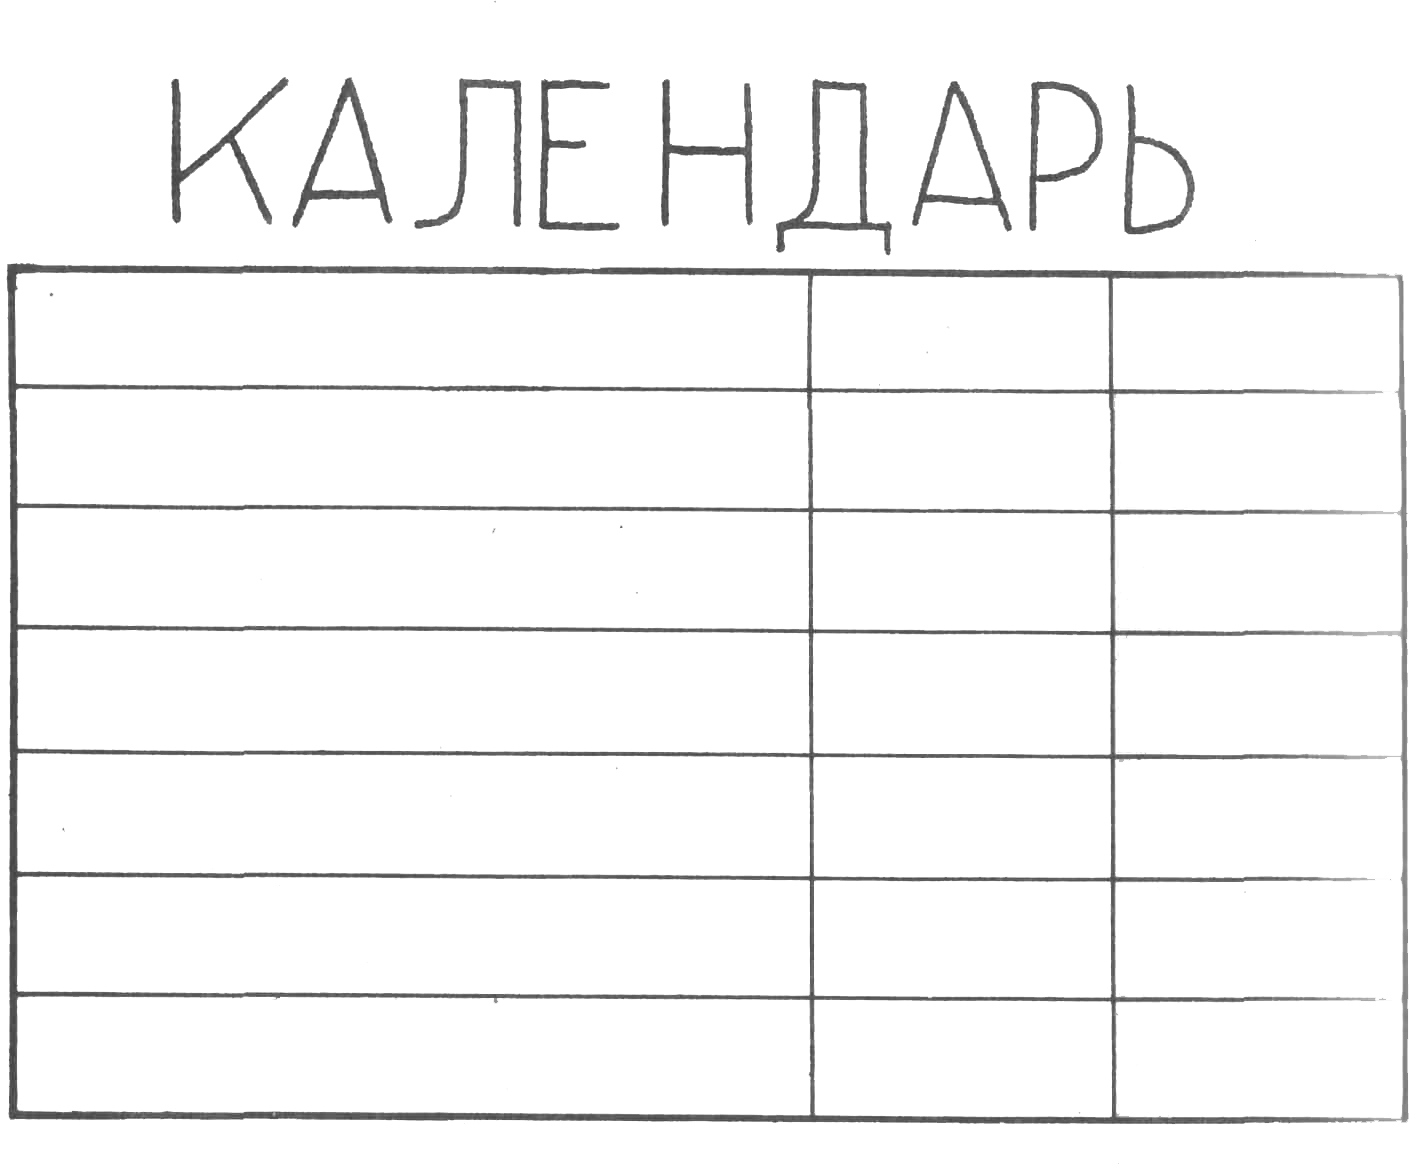 КАЛЕНДАРЬ